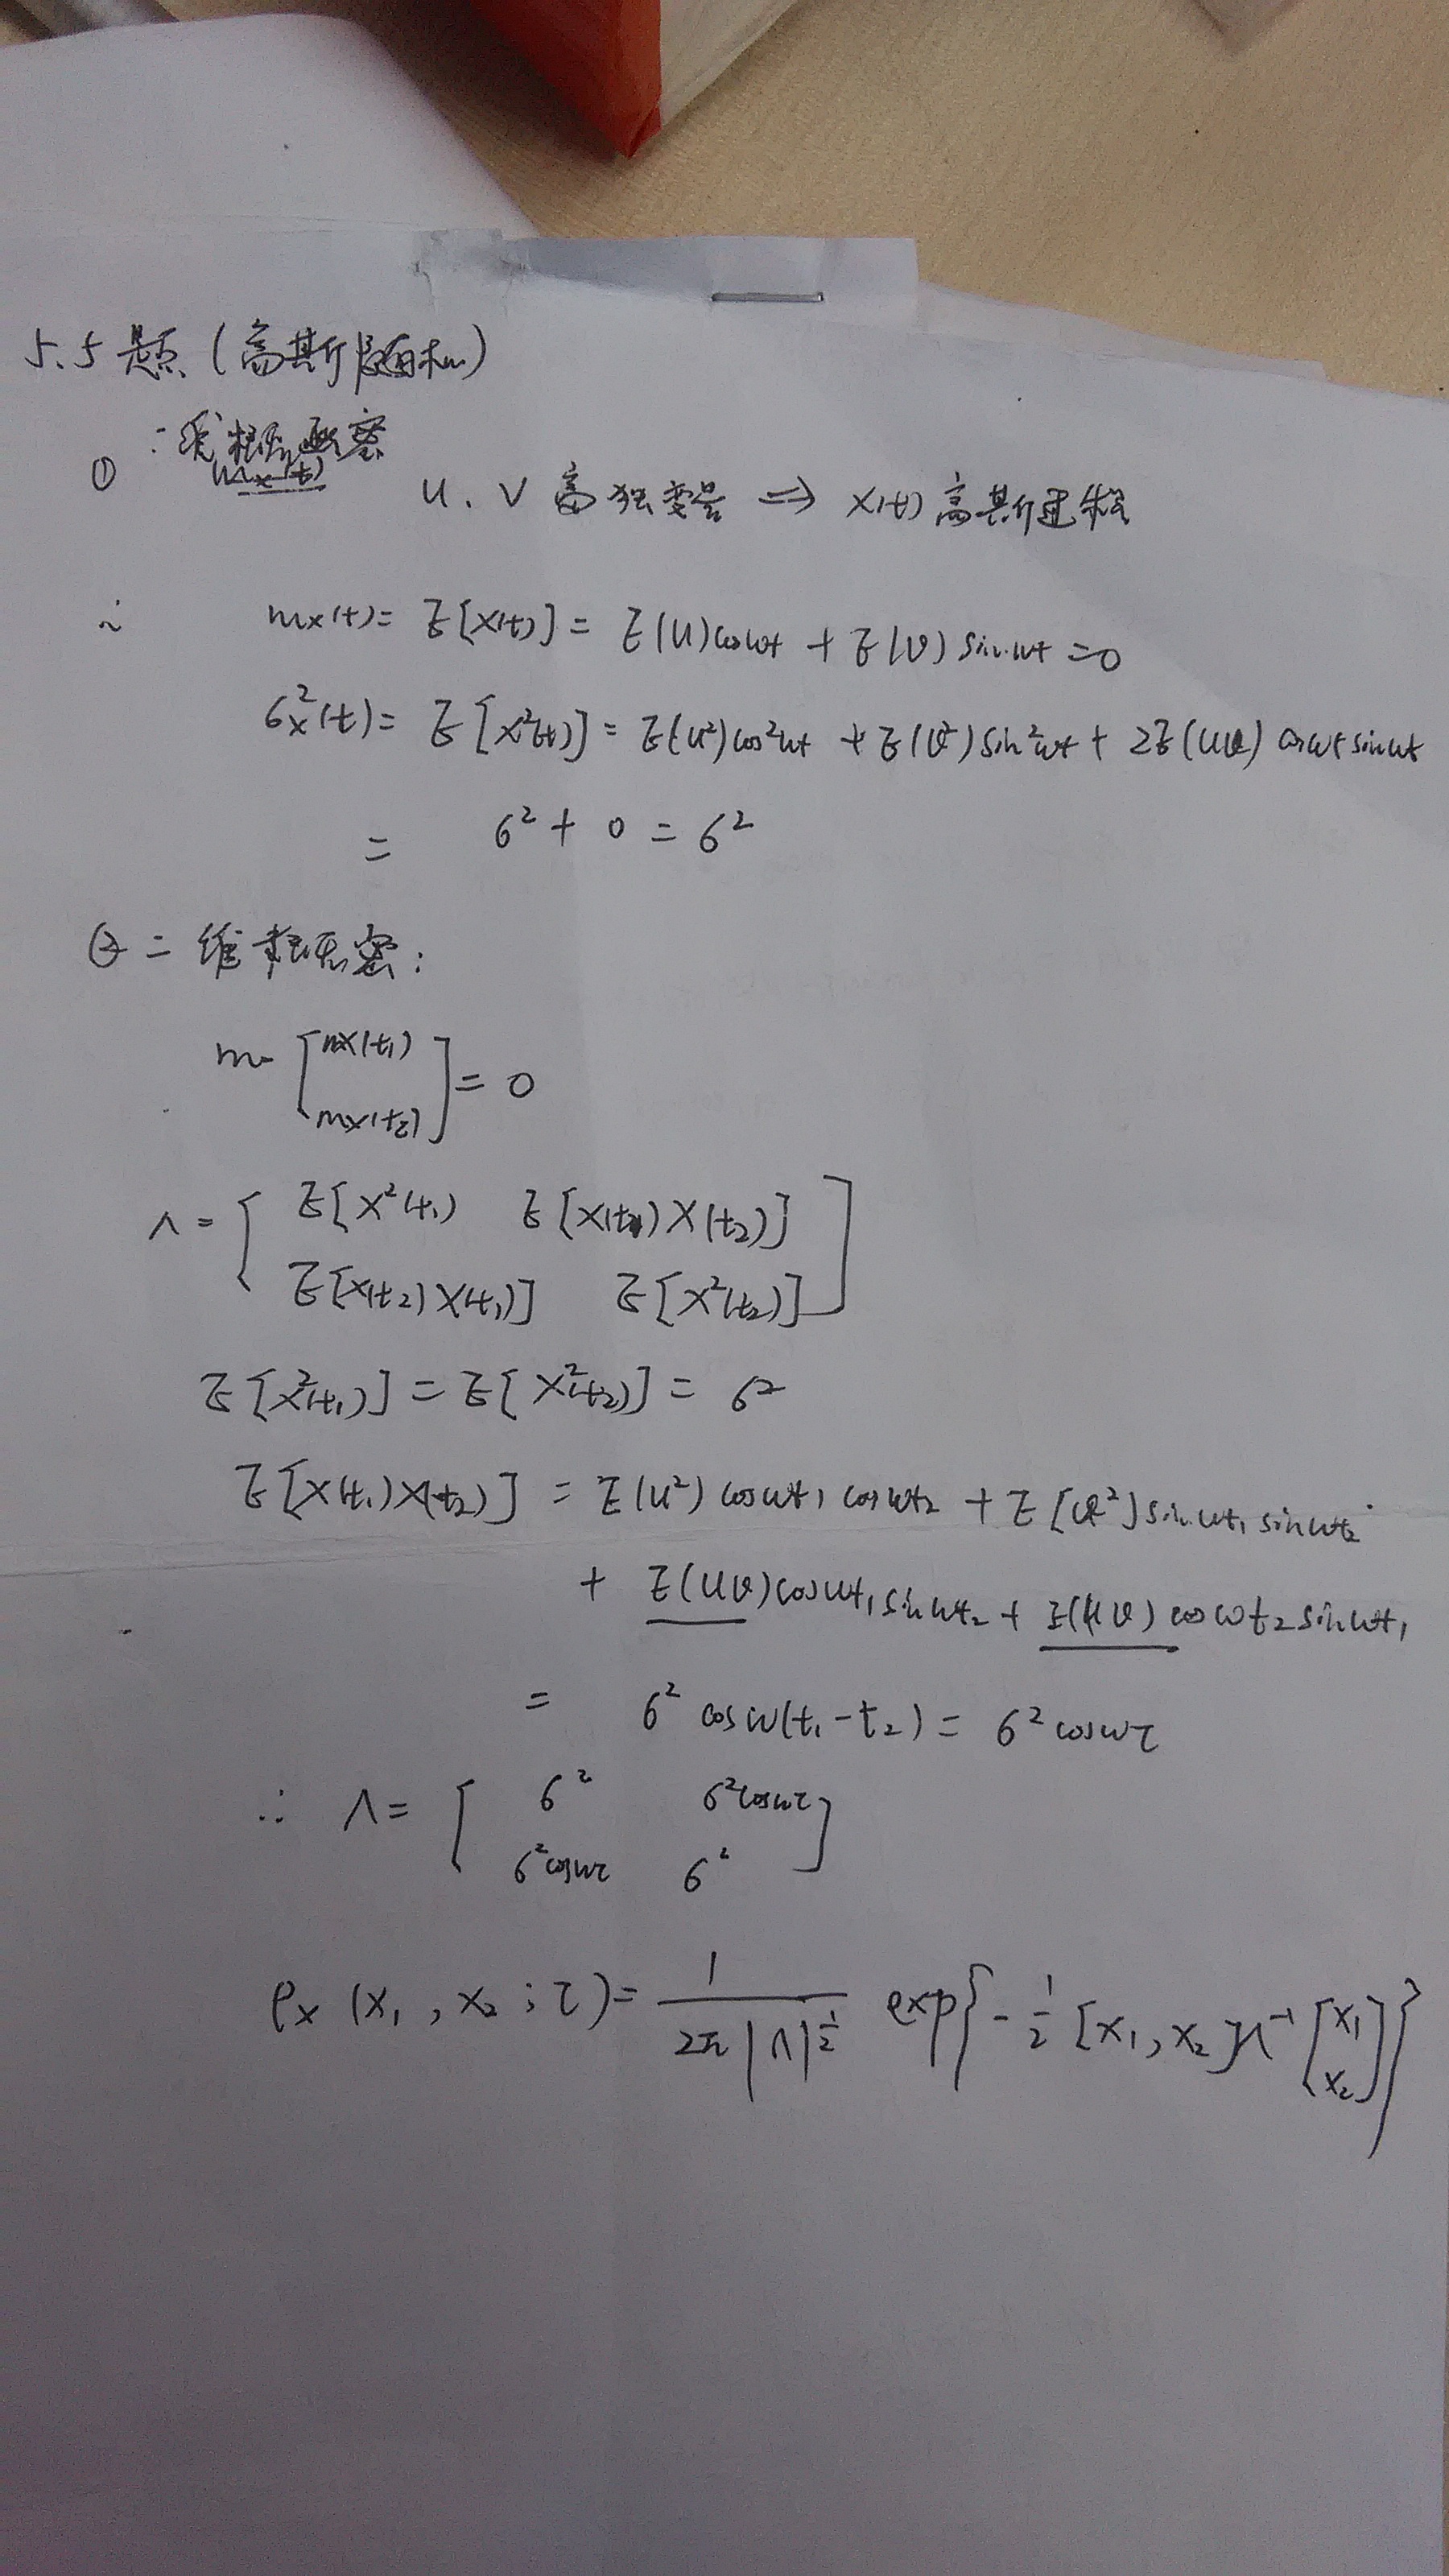 5.5题(高斯随机)
① 一维概密
mx(t)
U.V高独变量 ⇒ X(t)高斯过程
∴ mx(t)= E[X(t)] = E(U)cosωt + E(V)sinωt =0
6x²(t)= E[X²(t)] = E(U²)cos²ωt + E(V²)sin²ωt + 2E(UV)cosωt sinωt
= 6² + 0 = 6²
② 二维概密:
m= [mx(t₁) mx(t₂)] = 0
Λ = [ E[X²(t₁) E[X(t₁)X(t₂)]
E[X(t₂)X(t₁)] E[X²(t₂)] ]
E[X²(t₁)] = E[X²(t₂)] = 6²
E[X(t₁)X(t₂)] = E(U²)cosωt₁ cosωt₂ + E[V²]sinωt₁ sinωt₂
+ E(UV)cosωt₁sinωt₂ + E(UV)cosωt₂sinωt₁
= 6²cosω(t₁-t₂) = 6²cosωτ
∴ Λ = [ 6² 6²cosωτ
6²cosωτ 6² ]
Px(x₁,x₂;τ)= 1/2π|Λ|^½ exp{-½[x₁,x₂]Λ⁻¹[x₁ x₂]}